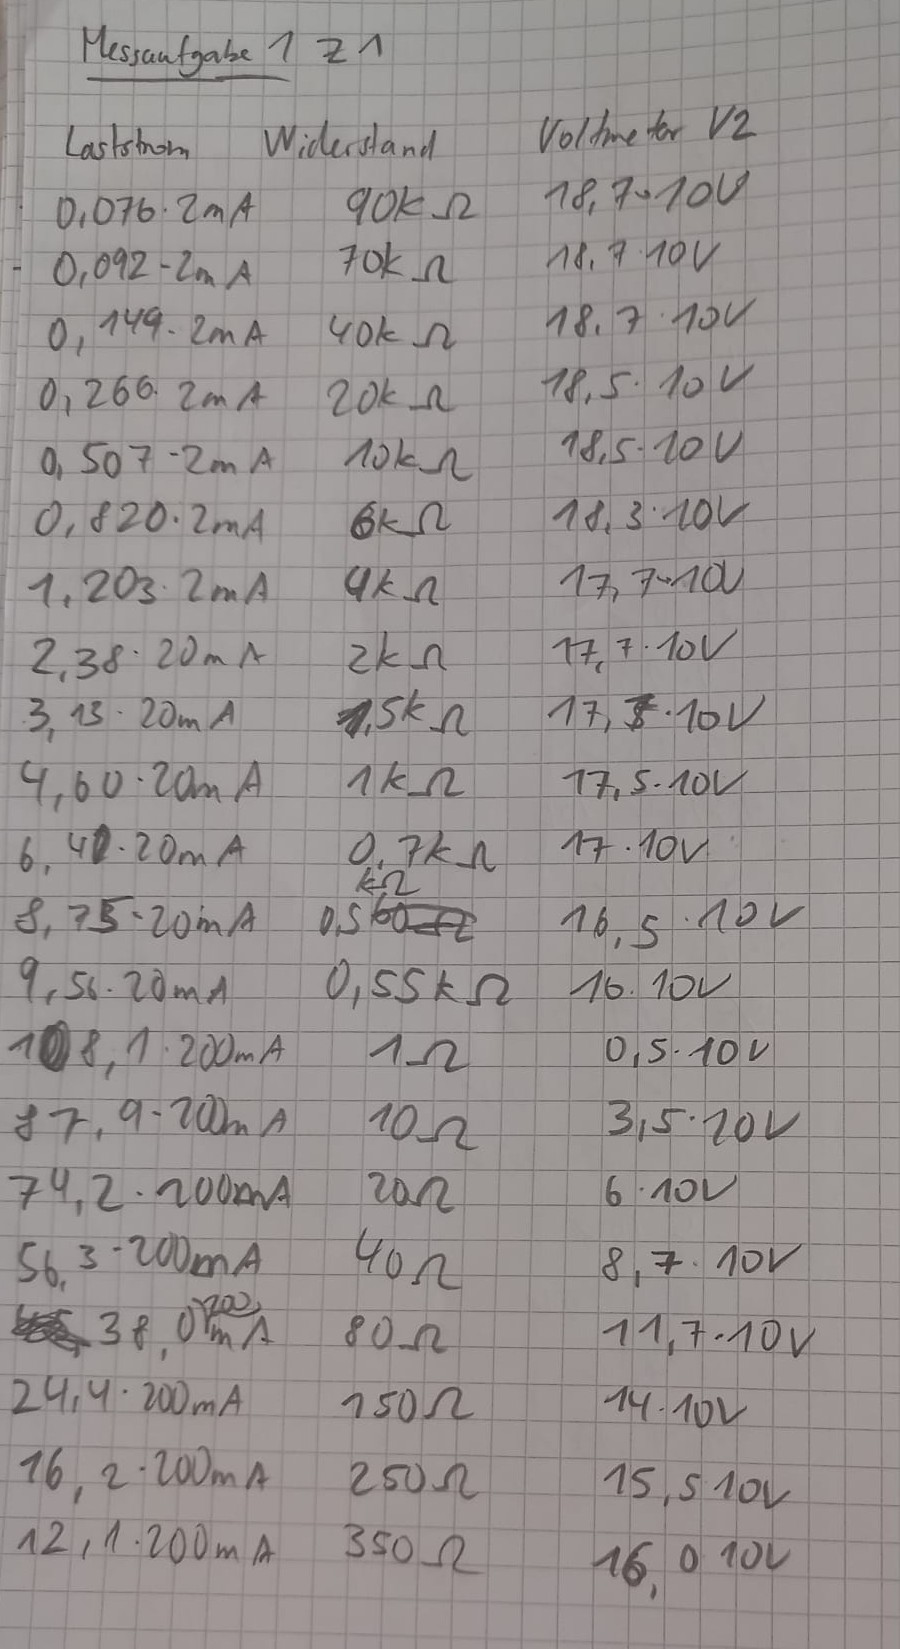 Messaufgabe 1 Z1
Laststrom Widerstand Voltmeter V2
0,076·2mA 90kΩ 18,7·10V
0,092·2mA 70kΩ 18,7·10V
0,149·2mA 40kΩ 18,7·10V
0,266·2mA 20kΩ 18,5·10V
0,507·2mA 10kΩ 18,5·10V
0,820·2mA 6kΩ 18,3·10V
1,203·2mA 4kΩ 17,7·10V
2,38·20mA 2kΩ 17,7·10V
3,13·20mA 1,5kΩ
4,60·20mA 1kΩ 17,5·10V
0,7kΩ 17·10V
kΩ
8,75·20mA 0,560 16,5·10V
9,56·20mA 0,55kΩ 16·10V
108,1·200mA 1Ω 0,5·10V
87,9·200mA 10Ω 3,5·10V
74,2·200mA 20Ω 6·10V
56,3·200mA 40Ω 8,7·10V
200
38,0 mA 80Ω 11,7·10V
24,4·200mA 150Ω 14·10V
16,2·200mA 250Ω 15,5 10V
12,1·200mA 350Ω 16,0 10V